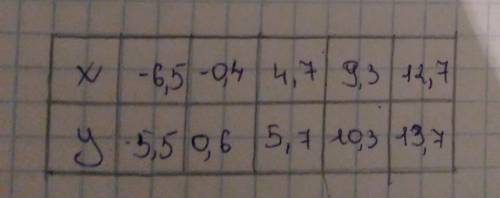 x -6,5 -0,4 4,7 9,3 12,7
y -5,5 0,6 5,7 10,3 13,7